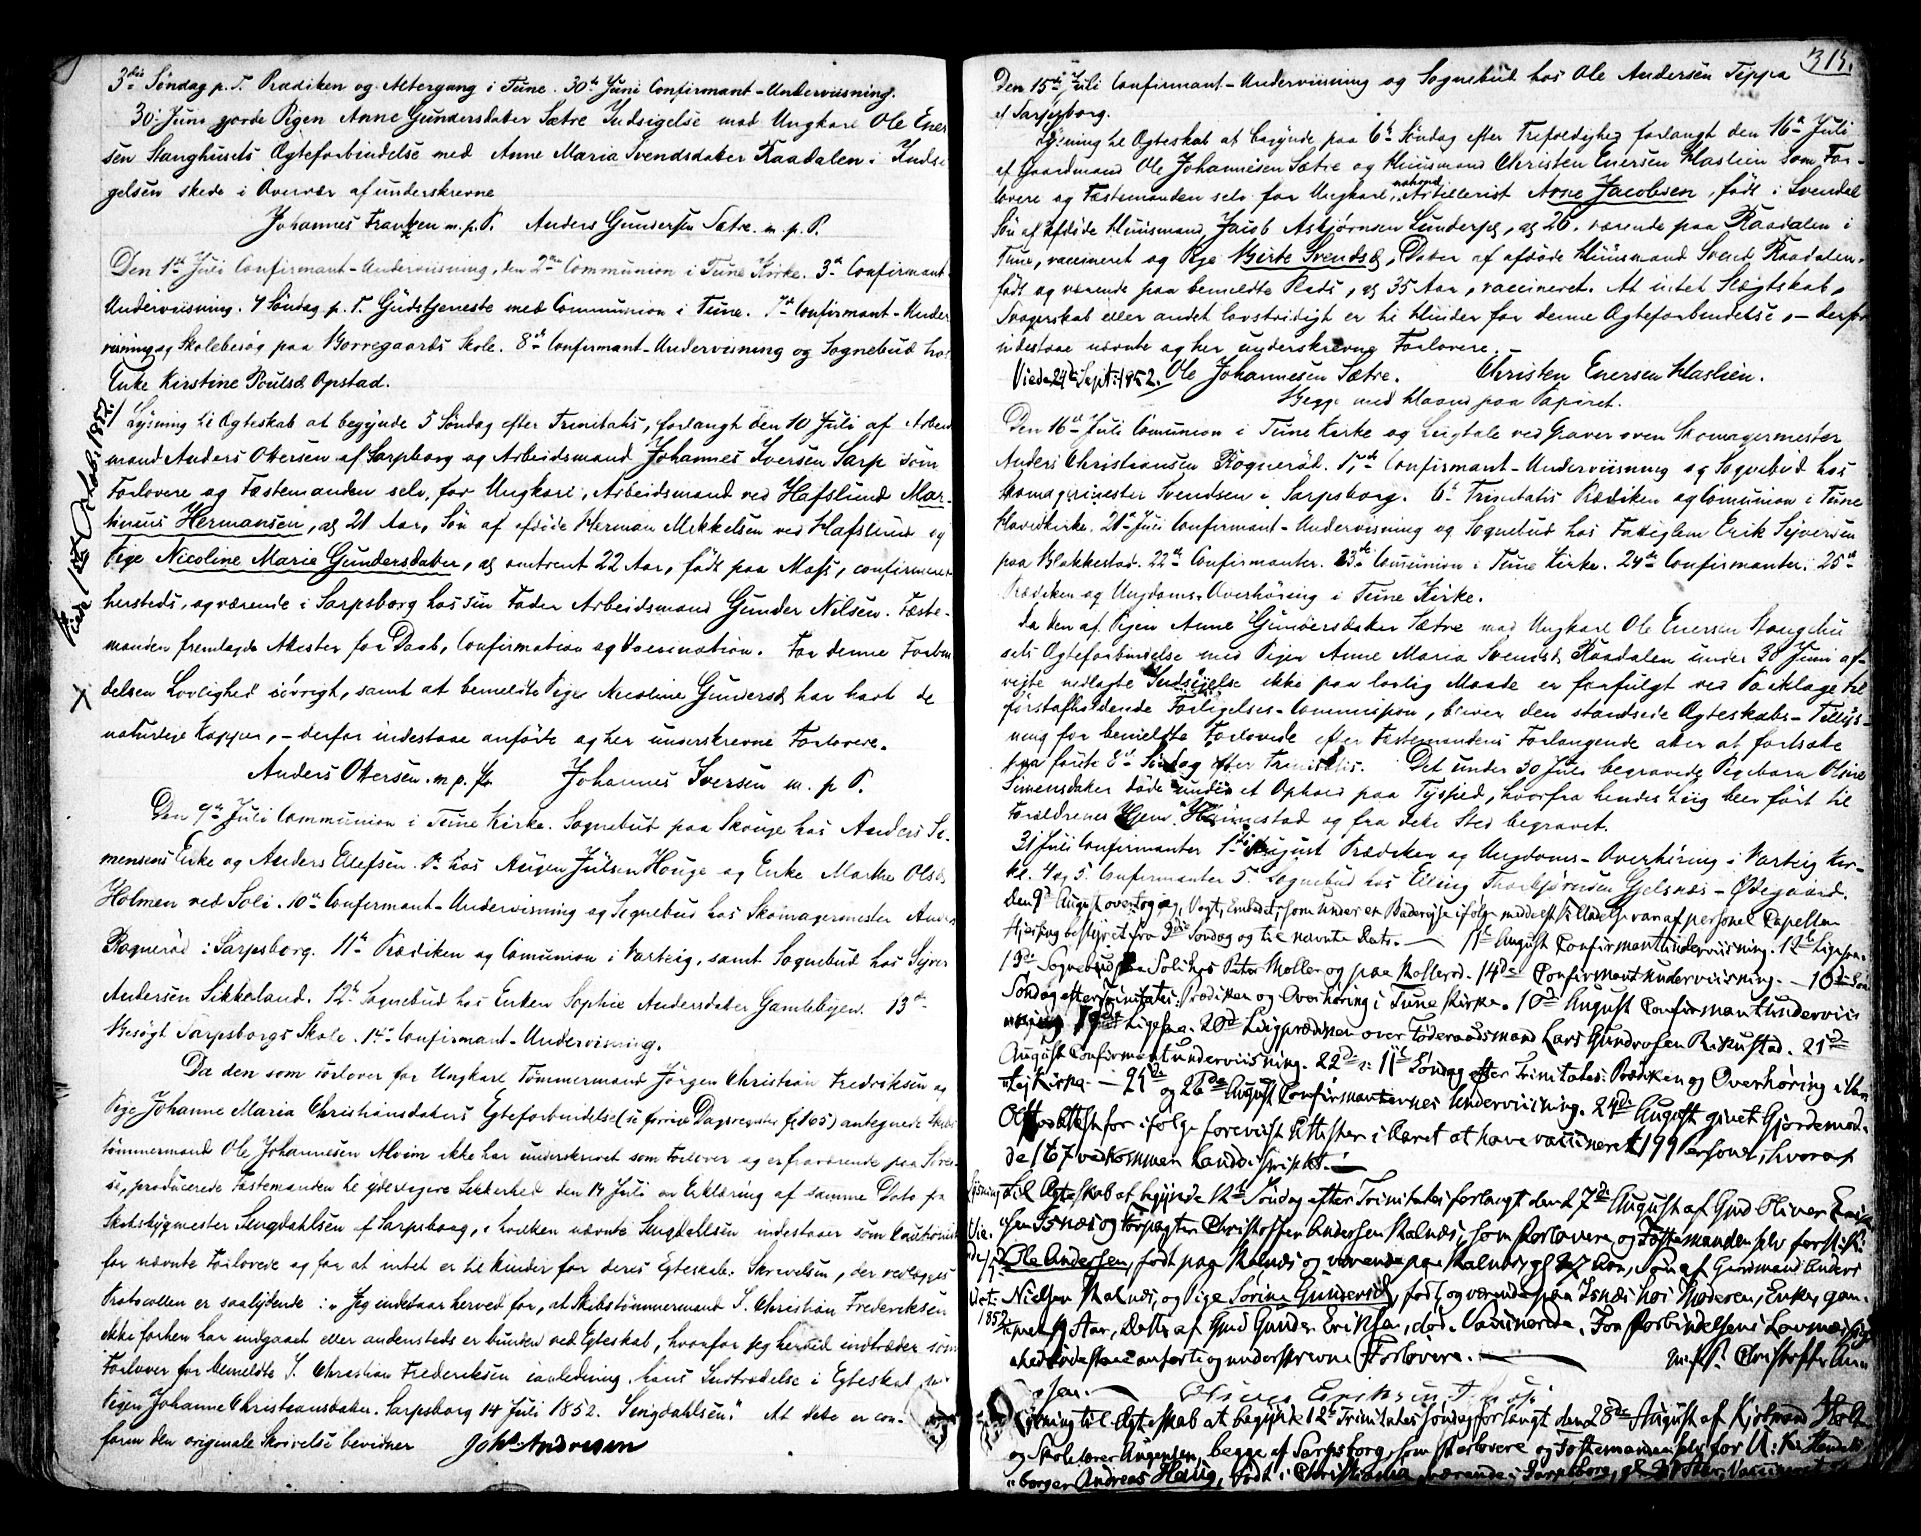 3die Søndag p. T. Prædiken og Altergang i Tune. 30te Juni Confirmant-Underviisning.
30. Juni gjorde Pigen Anne Gundersdatter Sætre Indsigelse mod Ungkarl Ole Ener
sen Stanghusets Ægteforbindelse med Anne Maria Svendsdatter Raadalen i Indsi
gelsen skede i Overvær af underskrevne
Johannes m.p.P. Anders Gundersen Sætre. m.p.P.
Den 1ste Juli Confirmant-Underviisning, den 2den Communion i Tune Kirke. 3die Confirmant
Underviisning. 4 Søndag p. T. Gudstjeneste med Communion i Tune. 7de Confirmant-Under
viisning og Skolebesøg paa Borregaards Skole. 8de Confirmant-Underviisning og Sognebud hos
Enke Kirstine Poulsd. Opstad.
Viede 1ste Octob. 1852.
Lysning til Ægteskab at begynde 5 Søndag efter Trinitatis, forlangt den 10 Juli af Arbeids
mand Anders Ottersen af Sarpsborg og Arbeidsmand Johannes Iversen Sarp som
Forlovere og Fæstemanden selv, for Ungkarl, Arbeidsmand ved Hafslund Mar-
tinius Hermansen, gl 21 Aar, Søn af afdøde Herman Mikkelsen ved Hafslund og
Pige Nicoline Marie Gundersdatter, gl omtrent 22 Aar, født paa Moss, confirmeret
hersteds, og værende i Sarpsborg hos sin Fader Arbeidsmand Gunder Nilsen. Fæste-
manden fremlagde Attester for Daab, Confirmation og Vaccination. For denne Forbin
delses Lovlighed iøvrigt, samt at bemeldte Pige Nicoline Gundersd. har havt de
naturlige Kopper, - derfor indestaae anførte og her underskrevne Forlovere.
Anders Ottersen. m.p.P. Johannes Iversen m.p.P.
Den 9de Juli Communion i Tune Kirke. Sognebud paa Skouge hos Anders Si-
mensens Enke og Anders Ellefsen. hos Augen Julsen Houge og Enke Marthe Olsd.
Holmen ved Soli. 10de Confirmant-Underviisning og Sognebud hos Skomagermester Anders
Rognerød i Sarpsborg. 11te Prædiken og Communion i Varteig, samt Sognebud hos Syver
Andersen Sikkeland. 12te Sognebud hos Enken Sophie Andersdatter Gamlebyen. 13de
Besøgt Sarpsborgs Skole. 14de Confirmant-Underviisning.
Da den som Forlover for Ungkarl Tømmermand Jørgen Christian Fredriksen og
Pige Johanne Maria Christiansdatters Egteforbindelse (se forrige Dagsregister) antegnede Skibs
tømmermand Ole Johannesen Alvim ikke har underskrevet som Forlover og er fraværende paa Søre-
se, producerede Fæstemanden til yderligere Sikkerhed den 14 Juli en Erklæring af samme Dato fra
Skibsbygmester Sengdahlsen af Sarpsborg, i hvilken nævnte Sengdahlsen indestaaer som Cautionist
for nævnte Forlovede og for at intet er til Hinder for deres Egteskab. Skrivelsen, der vedlægges
Protocollen er saalydende: "Jeg indestaar herved for, at Skibstømmermand J. Christian Frederiksen
ikke forhen har indgaaet eller andensteds er bunden ved Egteskab, hvorfor jeg herved indtræder som
Forlover for bemeldte J. Christian Frederiksen i anledning hans Indtrædelse i Egteskab med
Pigen Johanne Christiansdatter. Sarpsborg 14 Juli 1852. Sengdahlsen." At dette er con-
form den originale Skrivelse bevidner Johs Andresen
315.
Den 15de Juli Confirmant-Underviisning og Sognebud hos Ole Andersen Teppa
af Sarpsborg.
Lysning til Ægteskab at begynde paa 6te Søndag efter Trefoldighed forlangt den 16de Juli
af Gaardmand Ole Johannesen Sætre og Huusmand Christen Enersen Haslien som For-
lovere og Fæstemanden selv for Ungkarl, Artillerist Arne Jacobsen, født i Svendal
Søn af afdøde Huusmand Jacob Asbjørnsen, gl 26. værende paa Raadalen i
Tune, vaccineret og Pige Birte Svendsd, Datter af afdøde Huusmand Svend Raadalen.
født og værende paa bemeldte Plads, gl 35 Aar, vaccineret. At intet Slægtskab,
Svogerskab eller andet lovstridigt er til Hinder for denne Ægteforbindelse, - derfor
indestaae nævnte og her underskrevne Forlovere.
Viede 24de Sept: 1852. Ole Johannesen Sætre. Christen Enersen Haslien.
Begge med Haand paa Papiret.
Den 16de Juli Comunion i Tune Kirke og Liigtale ved Graven over Skomagermester
Anders Christiansen Rognerød. 17de Confirmant-Underviisning og Sognebud hos
Skomagermester Svendsen i Sarpsborg. 6te Trinitatis Prædiken og Comunion i Tune
Hovedkirke. 21de Juli Confirmant-Underviisning og Sognebud hos Fattiglem Erik Syversen
paa Blakkestad. 22de Confirmanter. 23de Comunion i Tune Kirke. 24de Confirmanter. 25de
Prædiken og Ungdoms-Overhøring i Tune Kirke.
Da den af Pigen Anne Gundersdatter Sætre mod Ungkarl Ole Enersen Stanghu
sets Ægteforbindelse med Pigen Anne Maria Svendsd. Raadalen under 30 Juni af-
vigte nedlagte Indsigelse ikke paa lovlig Maade er forfulgt ved Paaklage til
førstafholdende Forligelses-Commission, bliver den standsede Ægteskabs-Tillys-
ning for bemeldte Forlovede efter Fæstemandens Forlangende atter at fortsætte
paa første 8de Søndag efter Trinitatis. Det under 30 Juli begravede Pigebarn Oline
Simensdatter døde under et Ophold paa, hvorfra hendes Liig blev ført til
Forældrenes Hjem Hannestad og fra dette Sted begravet.
31 Juli Confirmanter 1ste August Prædiken og Ungdoms-Overhøring i Varteig Kir-
ke. 4 og 5. Confirmanter 5. Sognebud hos Elling Thorbjørnsen Gjelsnæs-Ødegaard.
Den 9de August overtog jeg, Vogt, Embedet, som under en Badereise ifølge meddeelt Tilladelse var af personel Capellan
Hjersing bestyret fra 3die Søndag og til nævnte Dato. — 11te August Confirmantunderviisning. 12te Ligesaa.
13de Sognebud paa Soli hos Peter Møller og paa. 14de Confirmantunderviisning. — 10de
Søndag efter Trinitatis: Prædiken og Overhøring i Tune Kirke. August Confirmantunderviis
ning 19de Ligesaa. 20de Liigprædiken over Føderaadsmand Lars Gundersen. 21de
August Confirmantunderviisning. 22de: 11te Søndag efter Trinitatis: Prædiken og Overhøring i Var
teig Kirke. — 25de og 26de August Confirmanternes Underviisning. 24de August givet Gjordemod.
Attest for ifølge foreviist Attester i Aaret at have vaccineret 199 Personer, hvoraf
de 167 vedkommer Landdistriktet. —
Lysning til Ægteskab at begynde 12te Søndag efter Trinitatis forlangt den 27de August af Gmd Oliver Erik
sen Isnæs og Forpagter Christoffer Andersen Kalnæs, som Forlovere og Fæstemanden selv for U:K:
Ole Andersen, født paa Kalnæs og værende paa Kalnæs, gl 27 Aar, Søn af Gmd Anders
Nielsen Kalnæs, og Pige Sorine Gundersd, født og værende paa Isnæs hos Moderen, Enke, gam-
mel Aar, Datter af Gmd Gunder Eriksen, død. Vaccinerede. For Forbindelsens Lovmæssig
hed indestaae anførte og underskrevne Forlovere. — m.p.P. Christoffer Ander
sen.
Oliver Eriksen
Viede 1852.
Lysning til Ægteskab at begynde 12te Trinitatis Søndag forlangt den 28de August af Kjøbmand Holt
og Skolelærer Augensen, begge af Sarpsborg, som Forlovere og Fæstemanden selv for U:K: Handels
borger Andreas Hauig, født i Christiania, værende i Sarpsborg, gl Aar, Vaccineret